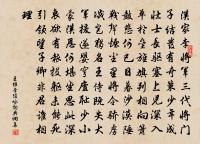 漢家李將軍三代將門
子結髮有奇策少年成
壯士長驅塞上兒深入
單于壘旌旗列相向簫
鼓悲何已日暮沙漠陲
戰聲煙塵裏將令驕虜
滅豈獨名王侍既失大
軍援遂嬰穹廬恥少小
蒙漢恩何堪坐思此深
衷欲有報投軀未能死
引領望子卿非君誰相
理
王維李陵詠